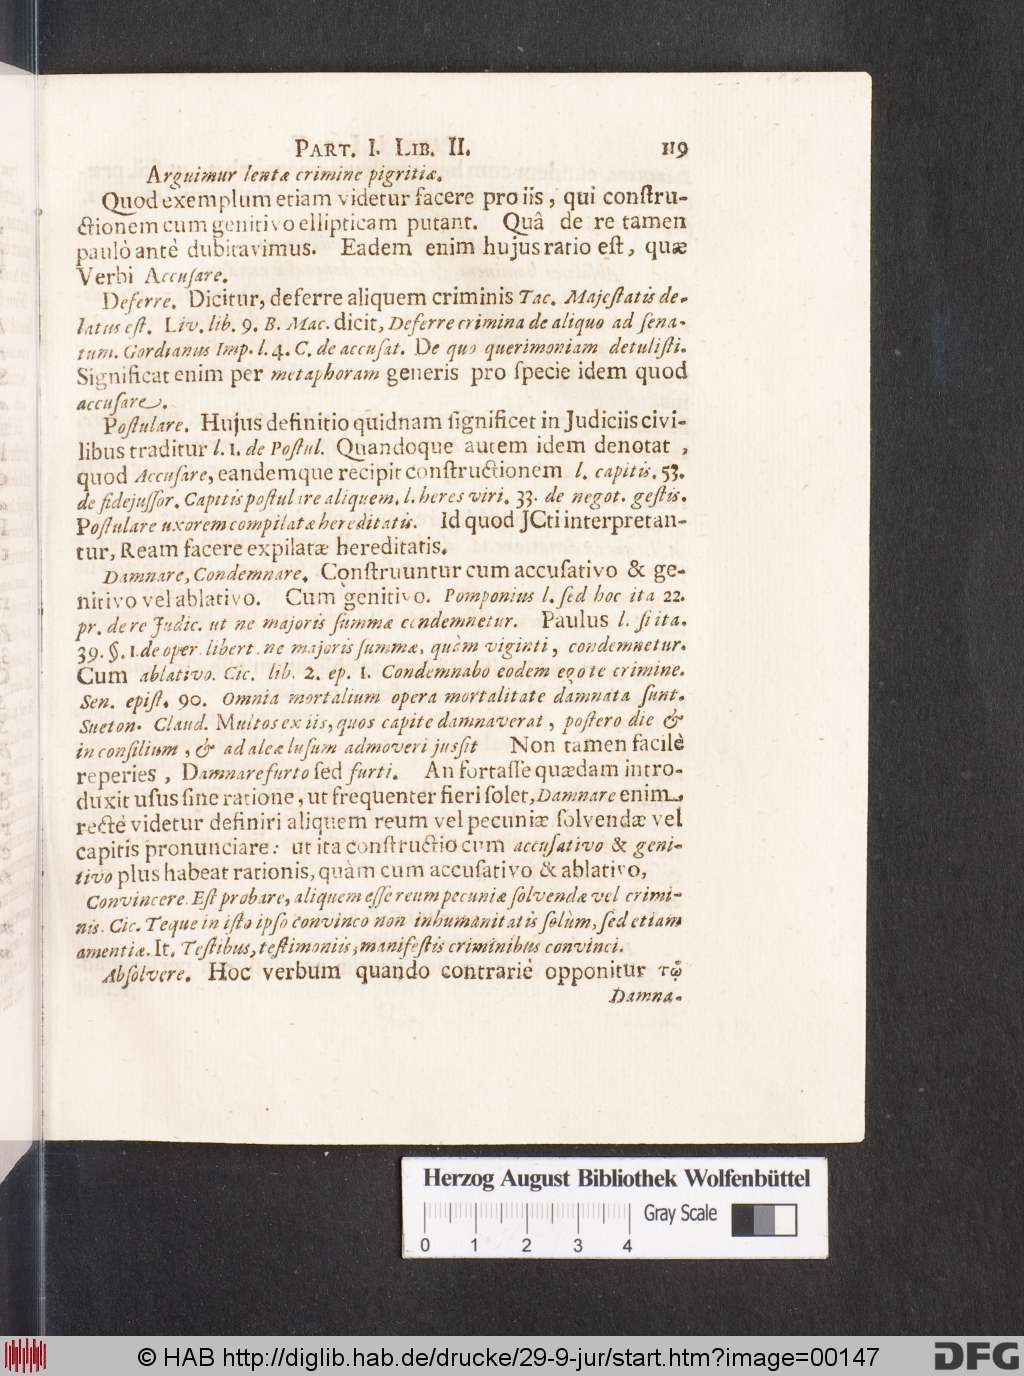 PART. I. LIB. II. 119
Arguimur lentæ crimine pigritiæ.
Quod exemplum etiam videtur facere pro iis, qui constru-
ctionem cum genitivo ellipticam putant. Quâ de re tamen
paulò antè dubitavimus. Eadem enim hujus ratio est, quæ
Verbi Accusare.
Deferre. Dicitur, deferre aliquem criminis Tac. Majestatis de-
latus est. Liv. lib. 9. B. Mac. dicit, Deferre crimina de aliquo ad sena-
tum. Gordianus Imp. l. 4. C. de accusat. De quo querimoniam detulisti.
Significat enim per metaphoram generis pro specie idem quod
accusare.
Postulare. Hujus definitio quidnam significet in Judiciis civi-
libus traditur l. 1. de Postul. Quandoque autem idem denotat,
quod Accusare, eandemque recipit constructionem l. capitis. 53.
de fidejussor. Capitis postulare aliquem. l. heres viri. 33. de negot. gestis.
Postulare uxorem compilatæ hereditatis. Id quod JCti interpretan-
tur, Ream facere expilatæ hereditatis.
Damnare, Condemnare. Construuntur cum accusativo & ge-
nitivo vel ablativo. Cum genitivo. Pomponius l. sed hoc ita 22.
pr. de re Judic. ut ne majoris summæ condemnetur. Paulus l. si ita.
39. §. 1. de oper. libert. ne majoris summæ, quàm viginti, condemnetur.
Cum ablativo. Cic. lib. 2. ep. 1. Condemnabo eodem ego te crimine.
Sen. epist. 90. Omnia mortalium opera mortalitate damnata sunt.
Sueton. Claud. Multos ex iis, quos capite damnaverat, postero die &
in consilium, & ad aleæ lusum admoveri jussit Non tamen facilè
reperies, Damnare furto sed furti. An fortasse quædam intro-
duxit usus sine ratione, ut frequenter fieri solet, Damnare enim
rectè videtur definiri aliquem reum vel pecuniæ solvendæ vel
capitis pronunciare: ut ita constructio cum accusativo & geni-
tivo plus habeat rationis, quàm cum accusativo & ablativo,
Convincere. Est probare, aliquem esse reum pecuniæ solvendæ vel crimi-
nis. Cic. Te que in isto ipso convinco non inhumanitatis solùm, sed etiam
amentiæ. It. Testibus, testimoniis, manifestis criminibus convinci.
Absolvere. Hoc verbum quando contrariè opponitur τῷ
Damna-
Herzog August Bibliothek Wolfenbüttel
Gray Scale
0 1 2 3 4
© HAB http://diglib.hab.de/drucke/29-9-jur/start.htm?image=00147
DFG